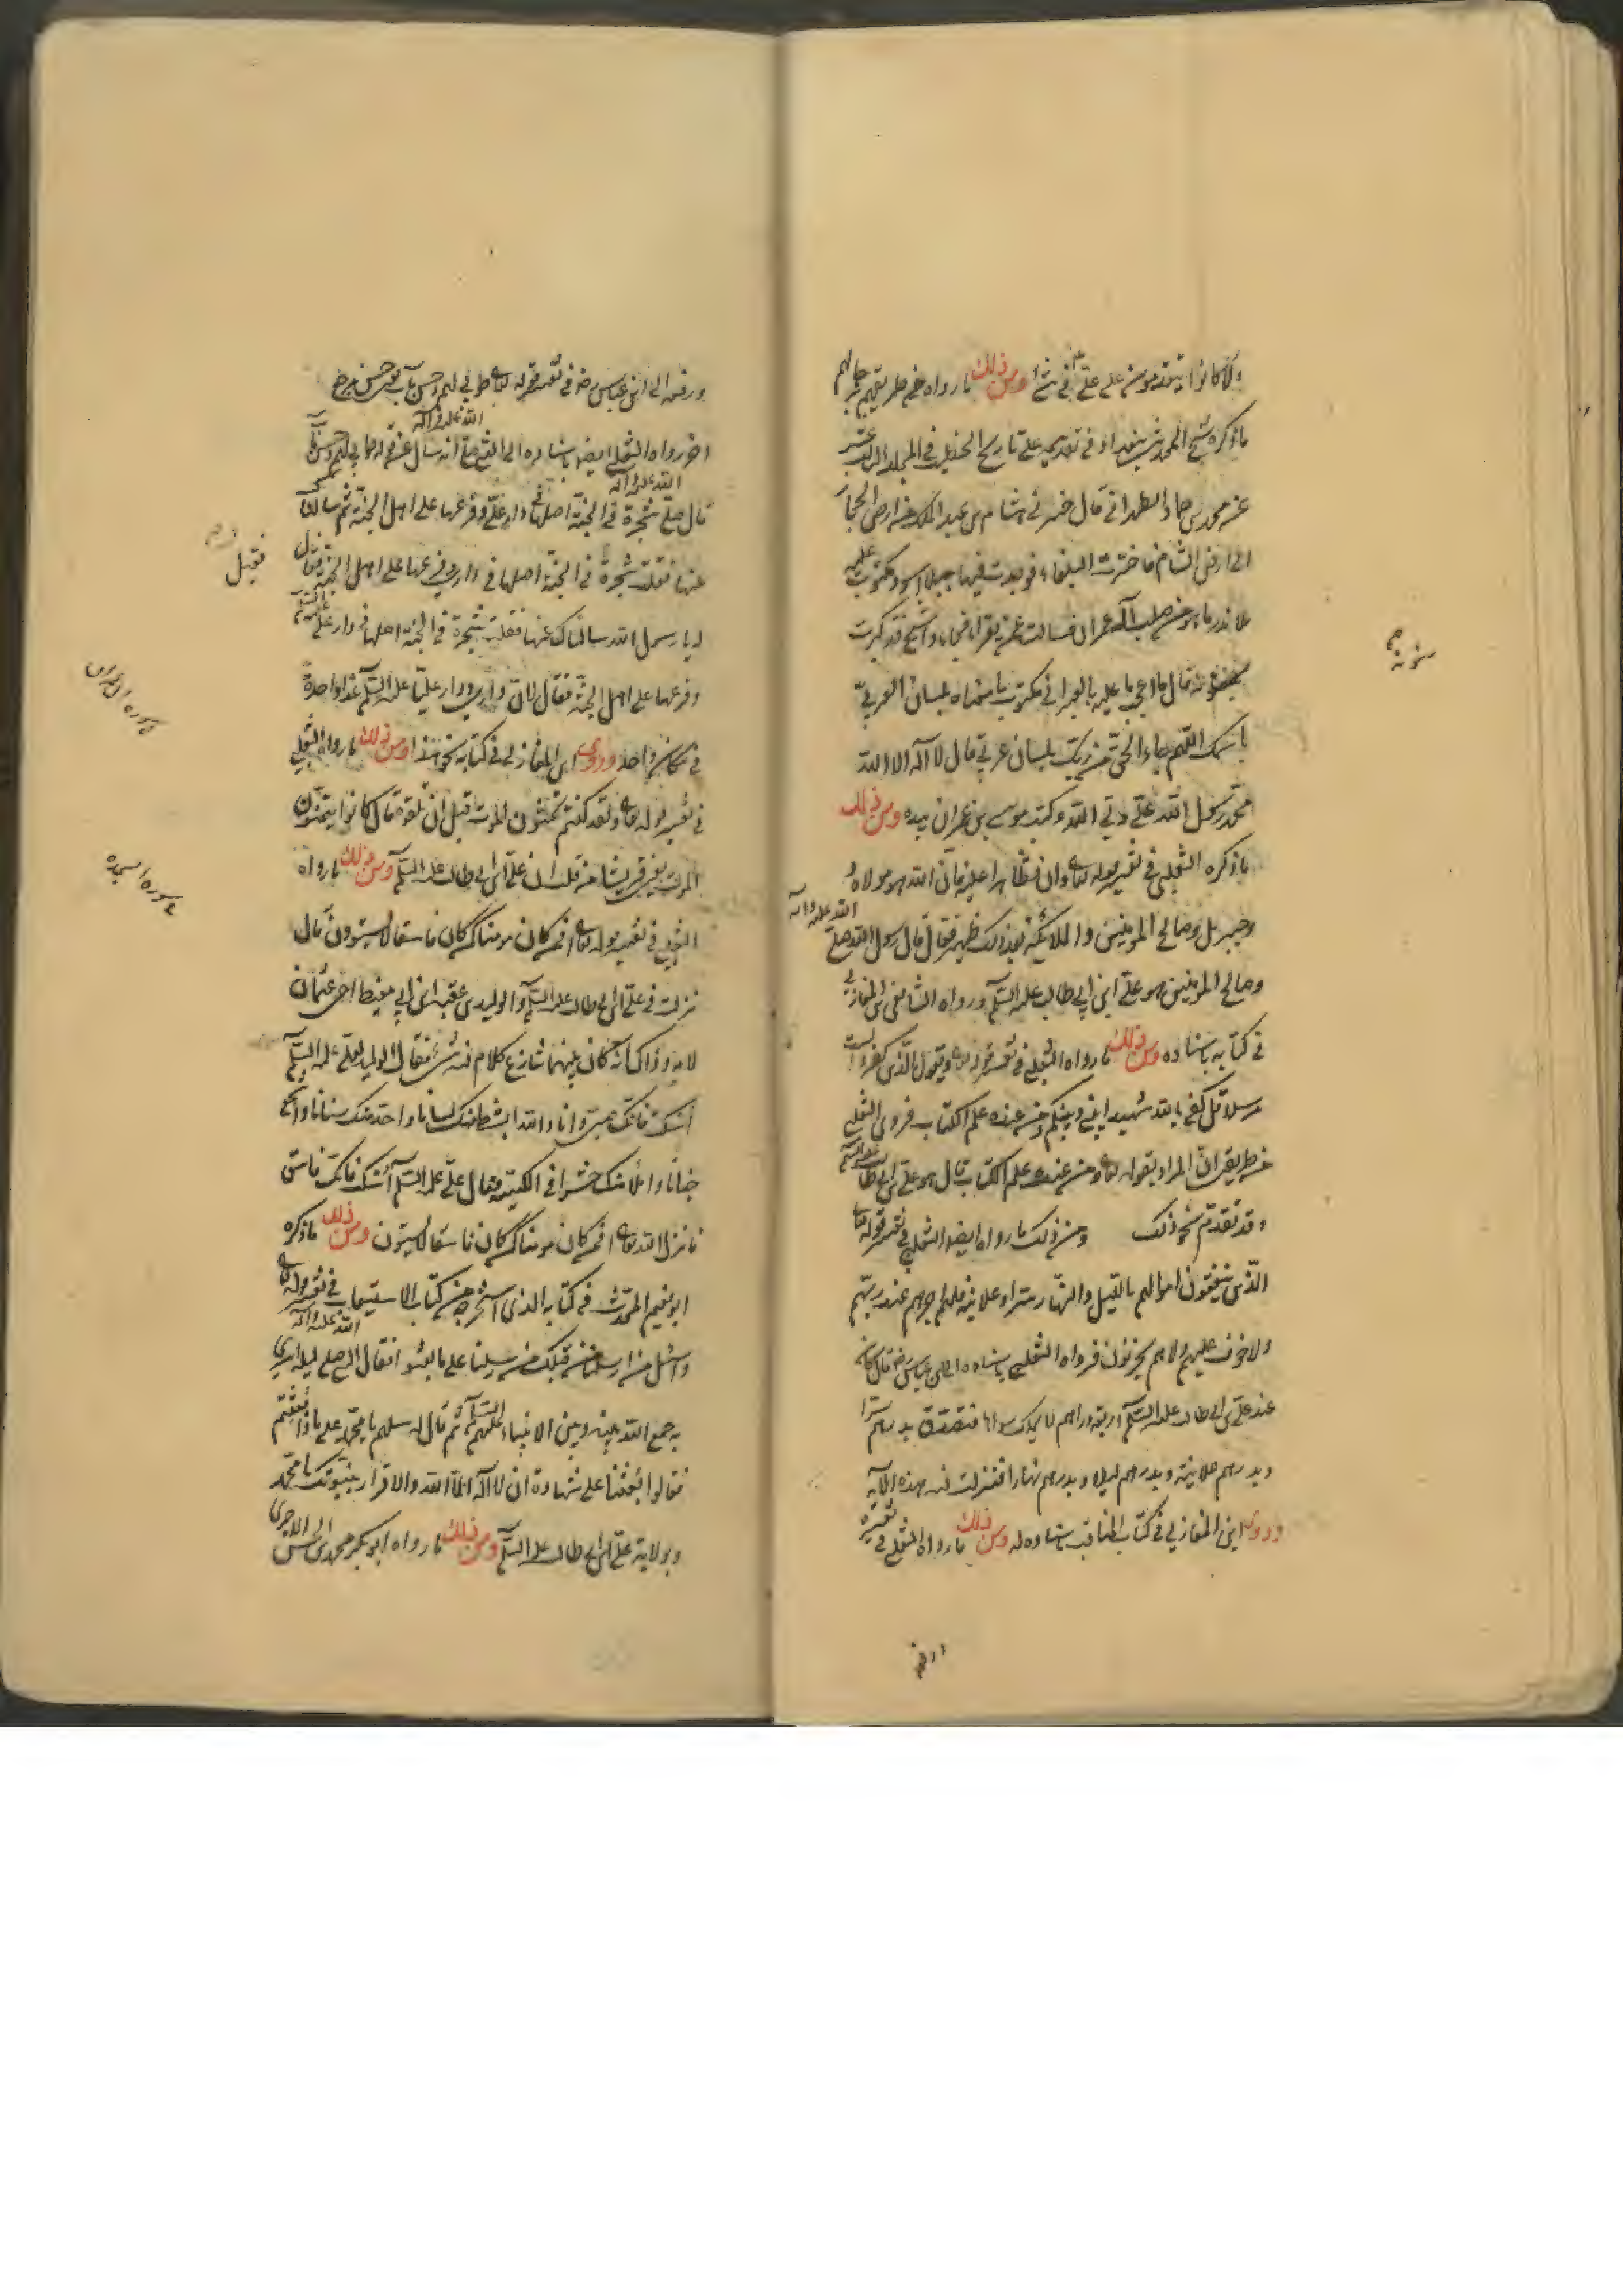 ولا كانوا يتقدمون على علي في شئ ومن ذلك ما رواه من طريقهم رجالهم
ما ذكره شيخ المحدثين ببغداد في تقديمه على تاريخ الخطيب في المجلد الثالث عشر
عن محمد بن حماد الطهراني قال خرج في هشام بن عبد الملك من ارض الحجاز
الى ارض الشام فاخترت البلقاء فوجدت فيها جبلا اسود مكتوب عليه
عمران فسالت عمن يقراه فجاءوا شيخ قد كبرت
قال ما اعجب ما عليه بالعبراني مكتوب ما معناه بلسان العربي
باسمك اللهم جاء الحق من ربك بلسان عربي قال لا اله الا الله
محمد رسول الله علي ولي الله وكتبه موسى بن عمران بيده ومن ذلك
ما ذكره الثعلبي في تفسير قوله تعالى وان تظاهرا عليه فان الله هو مولاه
وجبريل وصالح المؤمنين والملائكة بعد ذلك ظهير فقال قال رسول الله صلى الله عليه وآله
وصالح المؤمنين هو علي ابن ابي طالب عليه السلم ورواه الشافعي ابن المغازلي
في كتابه باسناده ومن ذلك ما رواه الثعلبي في تفسير قوله تعالى ويقول الذين كفروا لست
مرسلا قل كفى بالله شهيدا بيني وبينكم ومن عنده علم الكتاب فروى الثعلبي
من طريقين ان المراد بقوله تعالى ومن عنده علم الكتاب قال هو علي بن ابي طالب عليه السلم
وقد تقدم نحو ذلك ومن ذلك ما رواه ايضا الثعلبي في تفسير قوله تعالى
الذين ينفقون اموالهم بالليل والنهار سرا وعلانية فلهم اجرهم عند ربهم
ولا خوف عليهم ولا هم يحزنون فرواه الثعلبي باسناده الى ابن عباس رض قال كان
عند علي بن ابي طالب عليه السلم اربعة دراهم لا يملك سواها فتصدق بدرهم سرا
وبدرهم علانية وبدرهم ليلا وبدرهم نهارا فنزلت فيه هذه الآية
وروى ابن المغازلي في كتاب المناقب باسناده له ومن ذلك ما رواه الثعلبي في تفسيره
ورفعه
ورفعه الى ابن عباس رض في تفسير قوله تعالى طوبى لهم وحسن مآب
اخر رواه الثعلبي ايضا باسناده الى النبي صلى الله عليه وآله انه سال عن قوله طوبى لهم وحسن مآب
قال صلى الله عليه وآله شجرة في الجنة اصلها في دار علي وفرعها على اهل الجنة ثم سالوه
عنها فقلت شجرة في الجنة اصلها في داري وفرعها على اهل الجنة فقال
فقيل
له يا رسول الله سالناك عنها فقلت شجرة في الجنة اصلها في دار علي
وفرعها على اهل الجنة فقال لان داري ودار علي عليه السلم غدا واحدة
سورة آل عمران
في مكان واحد وروى ابن المغازلي في كتابه نحو هذا ومن ذلك ما رواه الثعلبي
في تفسير قوله تعالى ولقد كنتم تمنون الموت قبل ان تلقوه قال كانوا يتمنون
الموت يعني قريشا من قتلة ابن علي بن ابي طالب عليه السلم ومن ذلك ما رواه
سورة السجدة
الثعلبي في تفسير قوله تعالى افمن كان مومنا كمن كان فاسقا لا يستوون قال
نزلت في علي بن ابي طالب عليه السلم والوليد بن عقبة ابن ابي معيط اخي عثمان
لامه وذاك انه كان بينهما تنازع كلام في شئ فقال الوليد لعلي عليه السلم
اسكت فانك صبي وانا والله ابسط منك لسانا واحد منك سنانا واشجع
جنانا واملأ منك حشوا في الكتيبة فقال علي عليه السلم اسكت فانك فاسق
فانزل الله تعالى افمن كان مومنا كمن كان فاسقا لا يستون ومن ذلك ما ذكره
ابو نعيم المحدث في كتابه الذي استخرجه من كتاب الاستيعاب في تفسير قوله تعالى
واسئل من ارسلنا من قبلك من رسلنا على ما بعثوا فقال النبي صلى الله عليه وآله ليلة اسري
به جمع الله بينه وبين الانبياء عليهم السلم ثم قال له سلهم يا محمد على ماذا بعثتم
فقالوا بعثنا على شهادة ان لا اله الا الله والاقرار بنبوتك يا محمد
وبولاية علي بن ابي طالب عليه السلم ومن ذلك ما رواه ابو بكر محمد بن الحسين الآجري